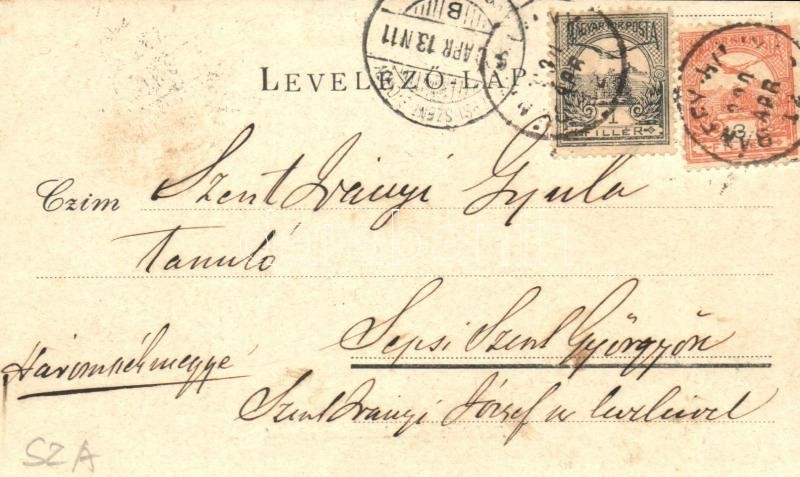 LEVELEZŐ-LAP
MAGYAR KIR. POSTA
1
FILLÉR
APR 13 N11
B
Czim Szent Iványi Gyula
tanuló
Sepsi Szent Györgyön
Háromszékmegye
Szent Iványi József úr levelével
SZA